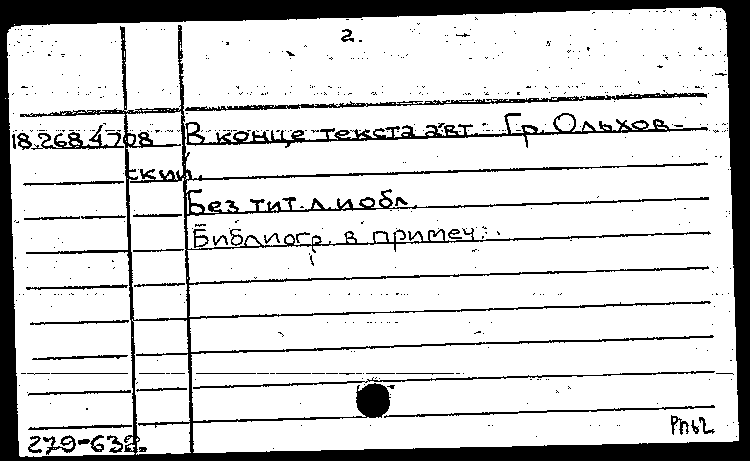 2.
18.268.4708 В конце текста авт.: Гр. Ольхов-
ский.
Без тит. л. и обл.
Библиогр. в примеч.
279-632.